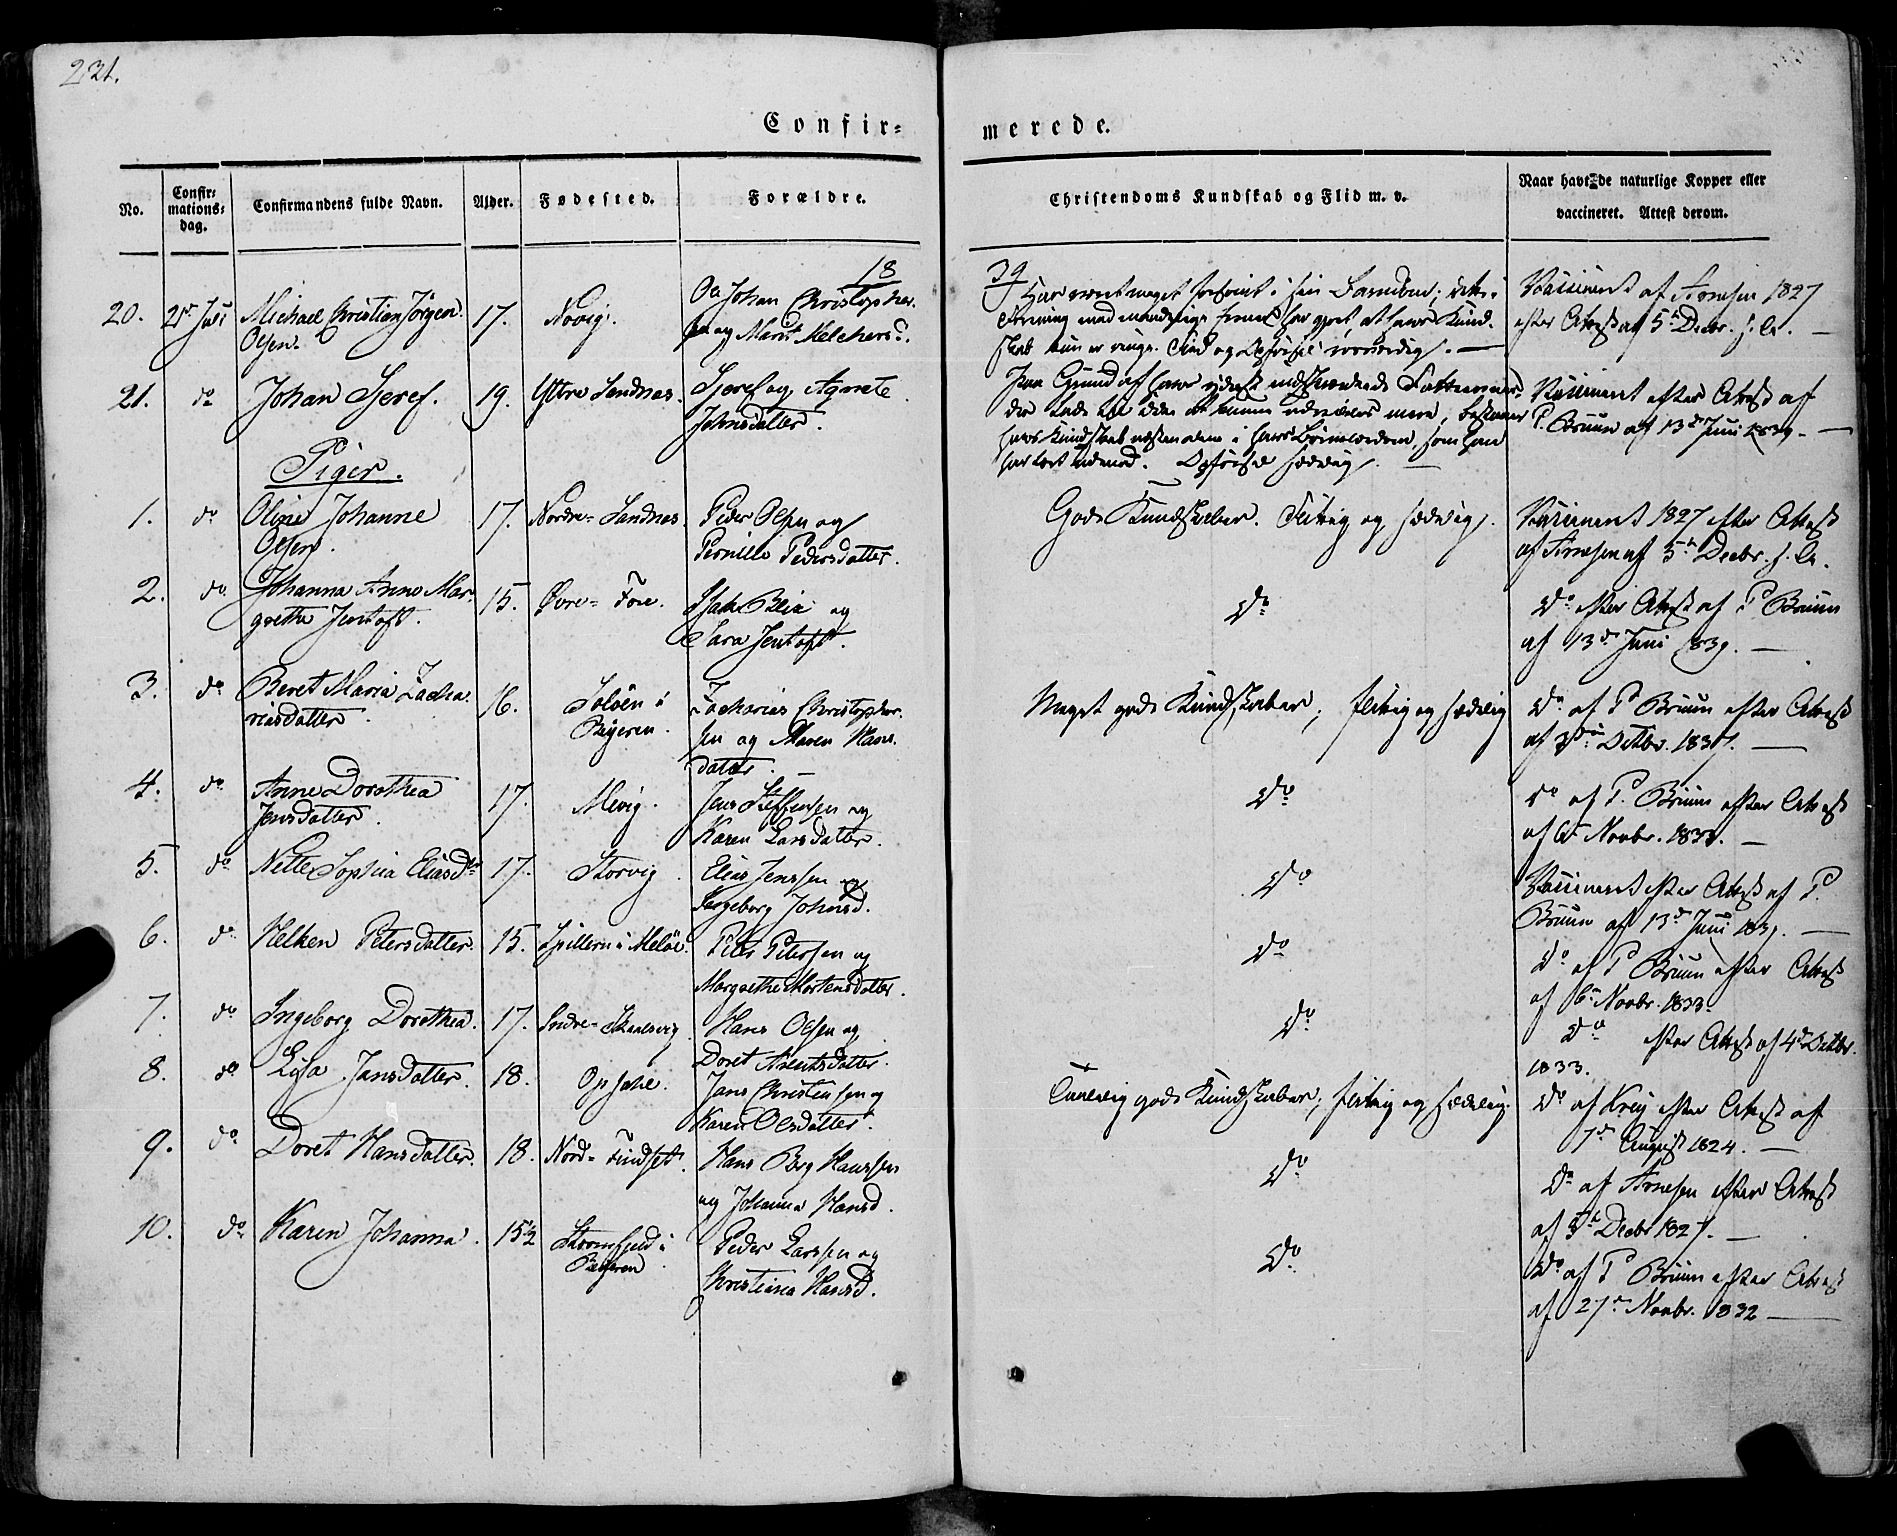 231.
Confir-
merede.
No.
Confir-
mations-
dag.
Confirmandens fulde Navn.
Alder.
Fødested.
Forældre.
Christendoms Kundskab og Flid m. v.
Naar havt de naturlige Kopper eller
vaccineret. Attest derom.
18
39
20. 21de Juli Michael Christian Jørgen
Olsen.
17. Novig.
Johan Christopher-
sen og Marit Melchersd.
Har været meget forsømt i sin Barndom;
Vaccineret af Arnesen 1827
efter Attest af 5te Decbr. s. A.
21. do Johan Sjeref. 19. Ytre Sandnes.
Sjeref og Agnete
Johnsdatter.
Paa Grund af hans
har lært udenad. Opførsel sædelig.
Vaccineret efter Attest af
P. Bruun af 13de Juni 1839.
Piger.
1. do Oline Johanne
Olsen.
17. Nordre-Sandnes.
Peder Olsen og
Pernille Pedersdatter.
Gode Kundskaber. Flittig og sædelig.
Vaccineret 1827 efter Attest
af Arnesen af 5te Decbr. s. A.
2. do Johanna Anne Mar-
grethe Jentoft.
15. Øvre-Fore.
Isak Beia og
Sara Jentoft.
Do
Do efter Attest af P Bruun
af 13de Juni 1839.
3. do Beret Maria Zacha-
riasdatter.
16. Soløen i
Beyeren.
Zacharias Christopher-
sen og Maren Hans-
datter.
Meget gode Kundskaber; flittig og sædelig
Do af P Bruun efter Attest
af 3die Octbr. 1837.
4. do Anne Dorothea
Jensdatter.
17. Mevig.
Jens Steffensen og
Karen Larsdatter.
Do
Do af P. Bruun efter Attest
af 6te Novbr. 1833.
5. do Nette Sophia Eliasdr
17. Storvig.
Elias Jenssen og
Ingeborg Johnsd.
Do
Vaccineret efter Attest af P.
Bruun af 13de Juni 1839.
6. do Helken Petersdatter. 15. Spilleren i Meløe.
Peter Petersen og
Margrethe Mortensdatter.
Do
Do af P Bruun efter Attest
af 6te Novbr. 1833.
7. do Ingeborg Dorothea. 17. Indre-Skaalsvig.
Hans Olsen og
Doret Arentsdatter.
Do
Do efter Attest af 4de Octbr.
1833.
8. do Lisa Jansdatter. 18. Opsahl.
Jans Christensen og
Karen Olsdatter.
Temmelig gode Kundskaber; flittig og sædelig.
Do af Krey efter Attest af
7de August 1824.
9. do Doret Hansdatter. 18. Nord-Fundset.
Hans Berg Hanssen
og Johanna Hansd.
Do
Do af Arnesen efter Attest
af 5te Decbr 1827.
10. do Karen Johanna. 15½ Stormfjeld i
Beyeren
Peder Larssen og
Christiana Hansd.
Do
Do af P Bruun efter Attest
af 27de Novbr. 1832